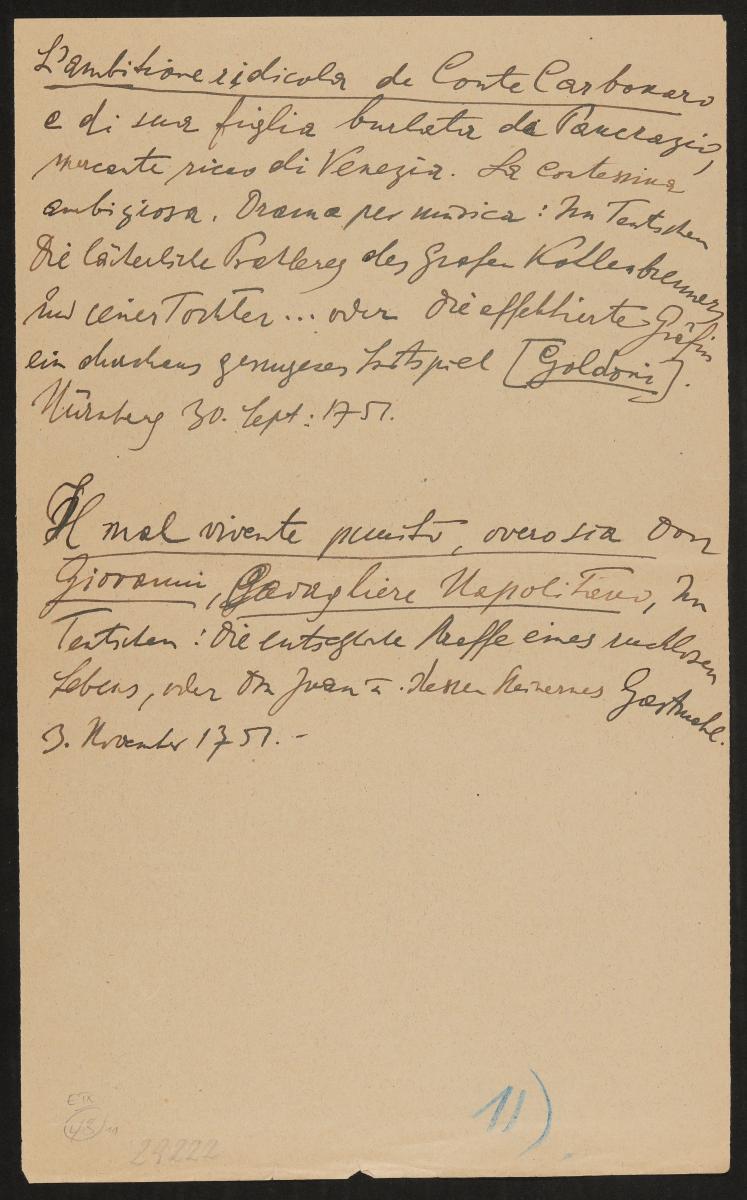 L'ambitione ridicola de Conte Carbonaro
e di sua figlia burlata da Pancrazio,
mercante ricco di Venezia. La contessina
ambiziosa. Drama per musica: Im Teutschen
Die lächerliche Prahlerey des Grafen Kollenbrenners
und seiner Tochter... oder die affektierte Gräfin
ein durchaus gesungenes Lustspiel [Goldoni].
Nürnberg 30. Sept: 1751.
Il mal vivente punito, overo sia Don
Giovanni, Cavagliere Napolitano, Im
Teutschen: Die entsetzliche Straffe eines ruchlosen
Lebens, oder Don Juan u. dessen steinernes Gastmahl.
3. November 1751. –
11)
E IX
48
29222